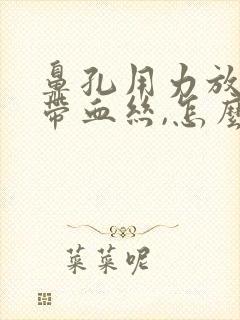 鼻孔用力放
带血丝,怎麼
菜菜呢